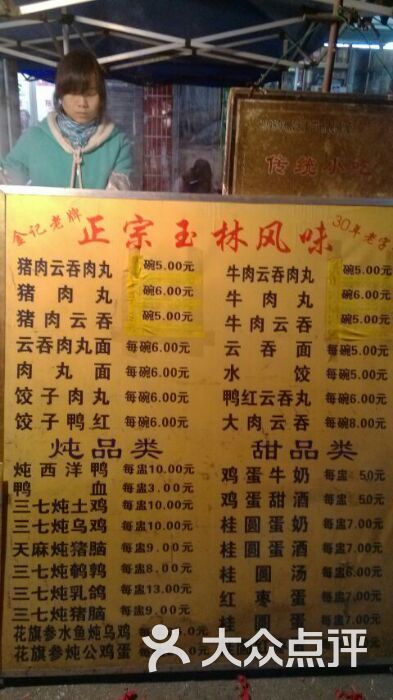 传统小吃
金记老牌 正宗玉林风味 30年老字
猪肉云吞肉丸 碗5.00元
猪肉丸 碗6.00元
猪肉云吞 碗5.00元
云吞肉丸面 每碗6.00元
肉丸面 每碗6.00元
饺子肉丸 每碗6.00元
饺子鸭红 每碗6.00元
牛肉云吞肉丸 碗5.00元
牛肉丸 碗6.00元
牛肉云吞 碗5.00元
云吞面 每碗5.00元
水饺 每碗5.00元
鸭红云吞肉丸 每碗6.00元
大肉云吞 每碗8.00元
炖品类
炖西洋鸭 每盅10.00元
鸭血 每盅3.00元
三七炖土鸡 每盅10.00元
三七炖乌鸡 每盅10.00元
天麻炖猪脑 每盅9.00元
三七炖鹌鹑 每盅8.00元
三七炖乳鸽 每盅13.00元
三七炖猪脑 每盅9.00元
花旗参水鱼炖乌鸡
花旗参炖公鸡蛋
甜品类
鸡蛋牛奶 每盅 50元
鸡蛋甜酒 每盅 50元
桂圆蛋奶 每盅7.00元
桂圆蛋酒 每盅7.00元
桂圆汤 每盅6.00元
红枣蛋 每盅7.00元
桂圆蛋 每盅7.00元
大众点评